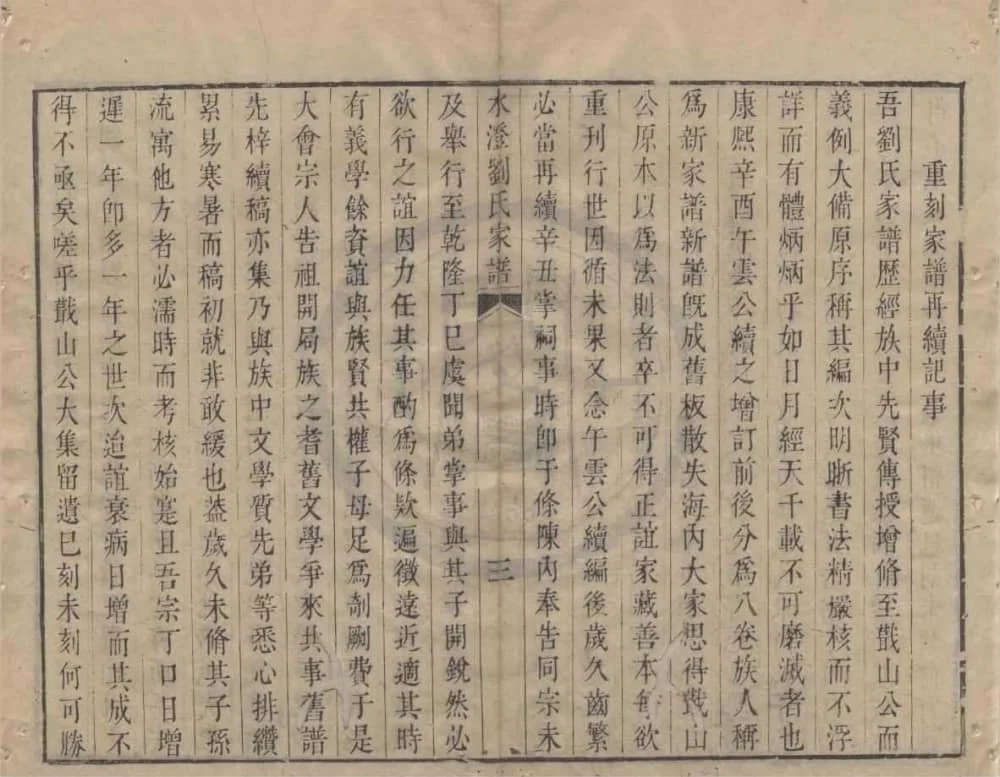 重刻家譜再續記事
吾劉氏家譜歷經族中先賢傳授增脩至蕺山公而
義例大備原序稱其編次明晰書法精嚴核而不浮
詳而有體炳炳乎如日月經天千載不可磨滅者也
康熙辛酉午雲公續之增訂前後分爲八卷族人稱
爲新家譜新譜旣成舊板散失海內大家思得蕺山
公原本以爲法則者卒不可得正誼家藏善本每欲
重刊行世因循未果又念午雲公續編後歲久齒繁
必當再續辛丑掌祠事時卽于條陳內奉告同宗未
水澄劉氏家譜 三
及舉行至乾隆丁巳虞聞弟掌事與其子開銳然必
欲行之誼因力任其事酌爲條欵遍徵遠近適其時
有義學餘資誼與族賢共權子母足爲剞劂費于是
大會宗人告祖開局族之耆舊文學爭來共事舊譜
先梓續稿亦集乃與族中文學質先弟等悉心排纘
累易寒暑而稿初就非敢緩也葢歲久未脩其子孫
流寓他方者必濡時而考核始寔且吾宗丁口日增
遲一年卽多一年之世次迨誼衰病日增而其成不
得不亟矣嗟乎蕺山公大集留遺已刻未刻何可勝